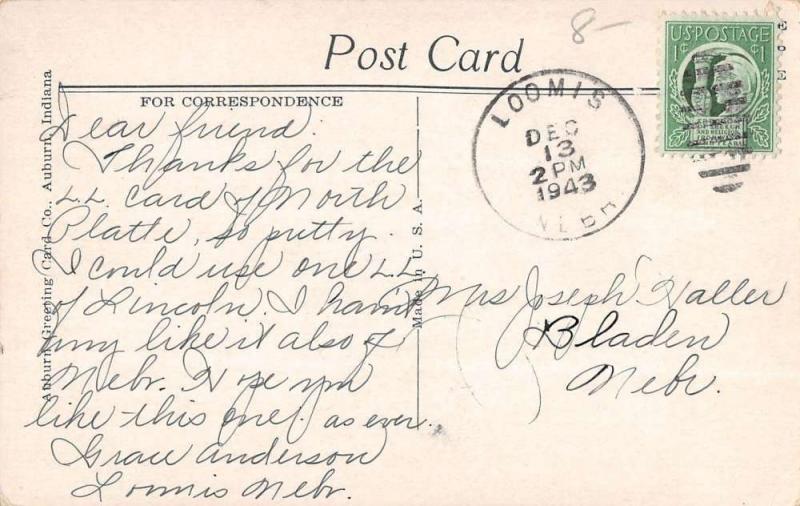 8-
Post Card
FOR CORRESPONDENCE
Auburn Greeting Card Co., Auburn, Indiana
Made in U. S. A.
Dear friend.
Thanks for the
L.L. card of North
Platte, so pretty.
I could use one L.L.
of Lincoln. I havnt
any like it also of
Nebr. Hope you
like this one. as ever.
Grace Anderson
Loomis Nebr.
LOOMIS
DEC
13
2 PM
1943
NEBR.
U.S. POSTAGE
1¢ 1¢
Mrs Joseph Haller
Bladen
Nebr.